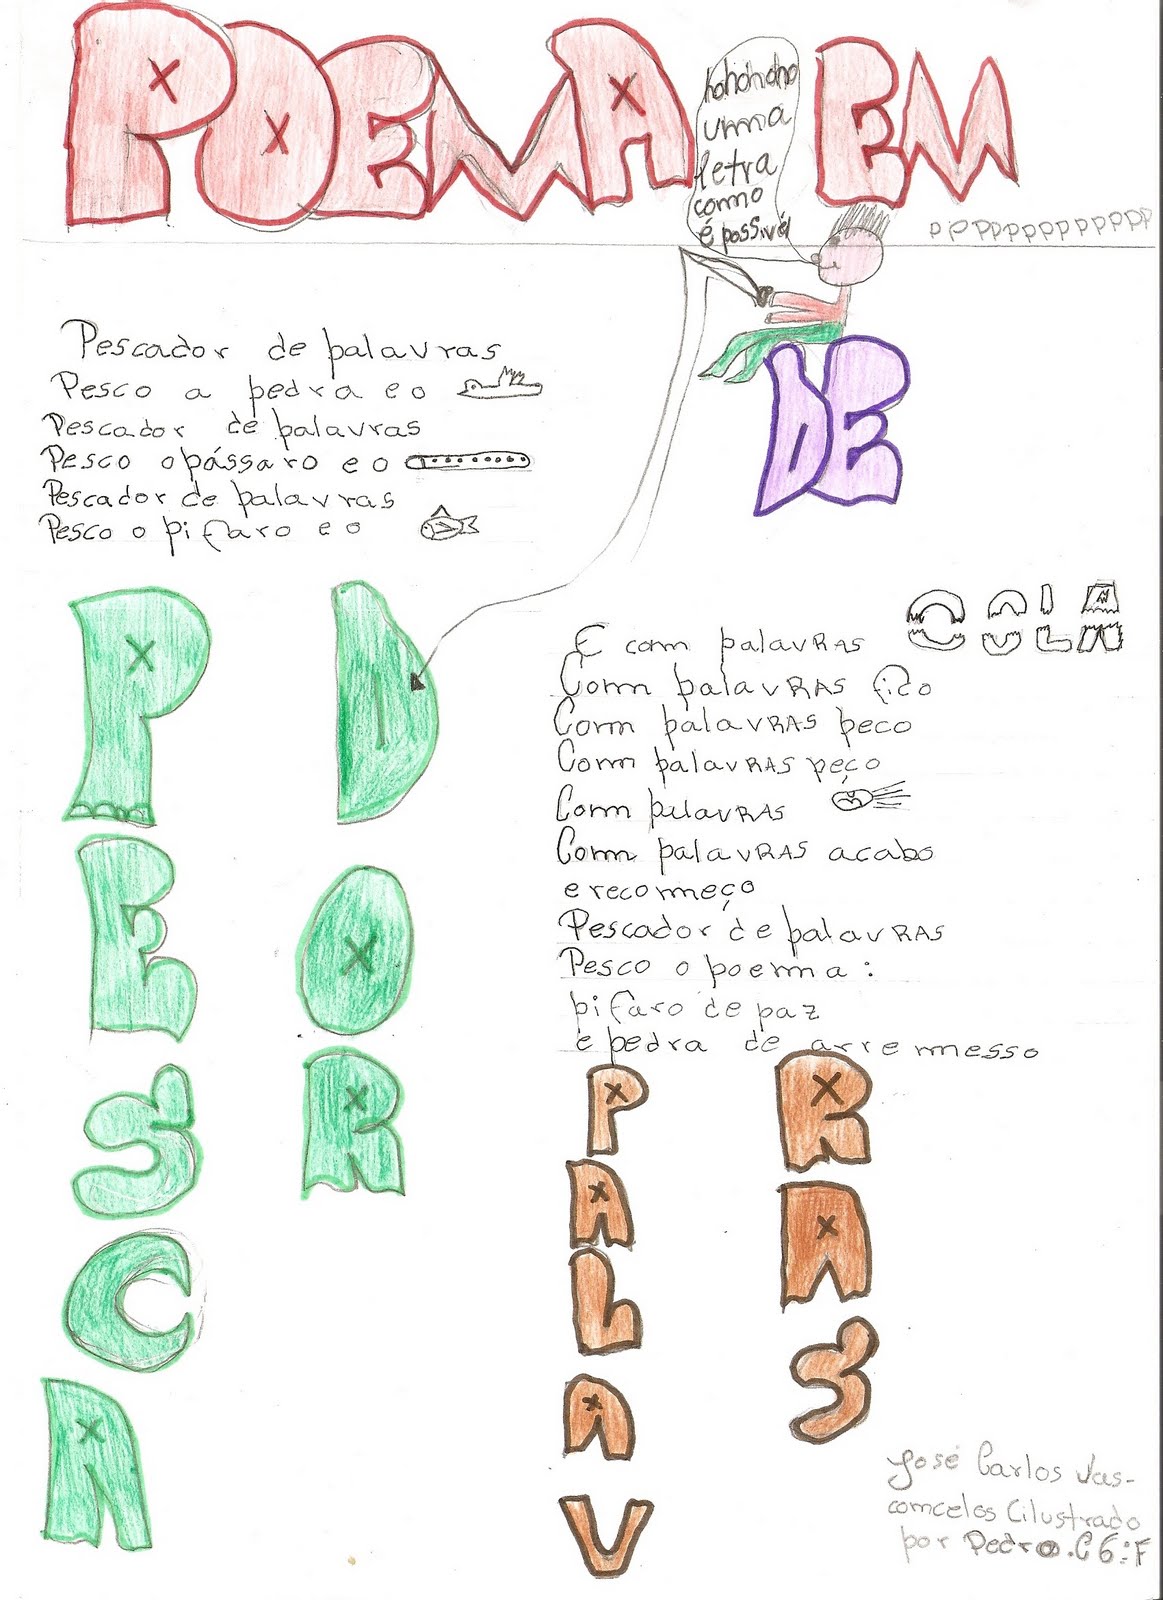 POEMA EM
hohohoho
uma
letra
como
é possivél
PPPPPPPPPPPPP
DE
Pescador de palavras
Pesco a pedra e o
Pescador de palavras
Pesco o pássaro e o
Pescador de palavras
Pesco o pifaro e o
P
E
S
C
A
D
O
R
E com palavRAS
Com palavRAS fico
Com palavRAS peco
Com palavRAS peço
Com palavRAS
Com palavRAS acabo
e recomeço
Pescador de palavRAS
Pesco o poema:
pifaro de paz
e pedra de arremesso
P
A
L
A
V
R
A
S
José Carlos Vas-
comcelos (ilustrado
por Pedro.C 6:F